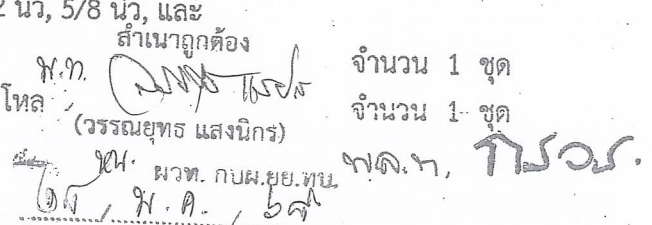 2 นิ้ว, 5/8 นิ้ว, และ
สำเนาถูกต้อง
พ.ท. จำนวน 1 ชุด
โหล จำนวน 1 ชุด
(วรรณยุทธ แสงนิกร)
หน. ผวท. กบผ.ยย.ทบ. พ.ล.ท.
พ.ค.